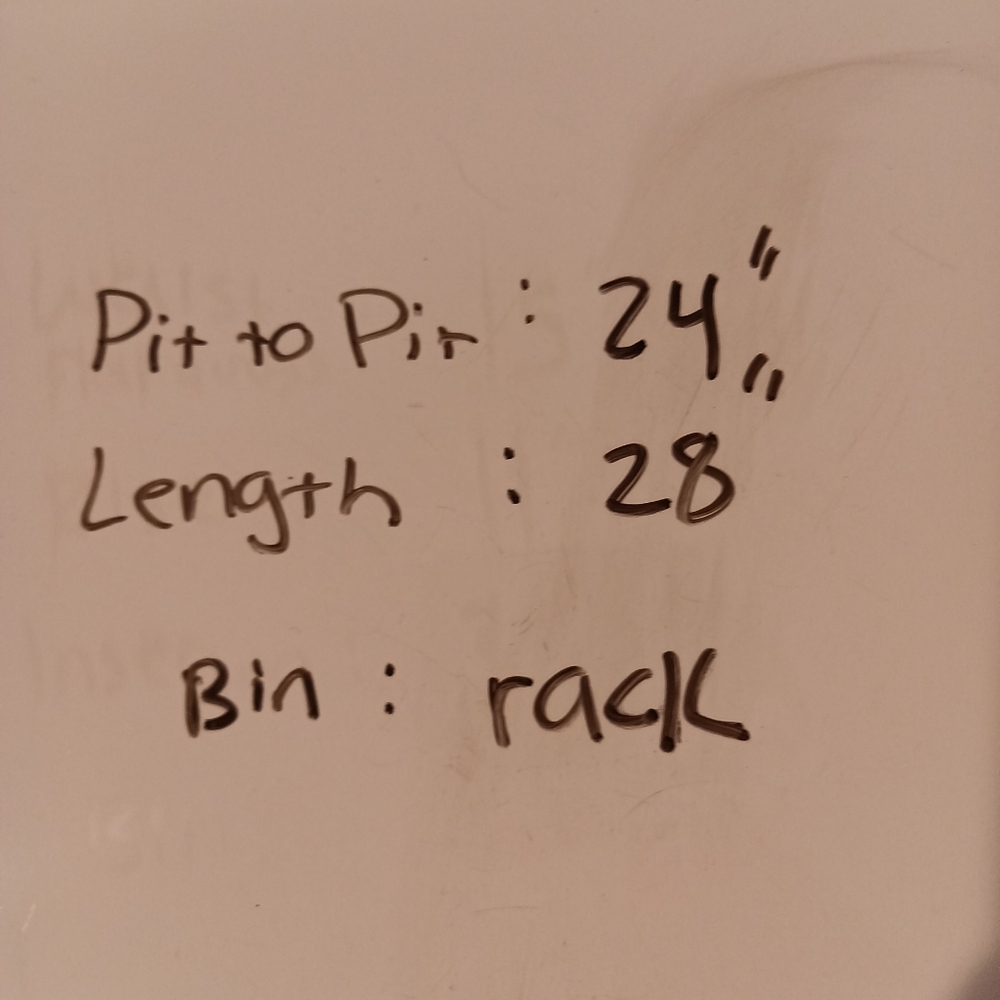 Pit to Pit : 24"
Length : 28"
Bin : rack